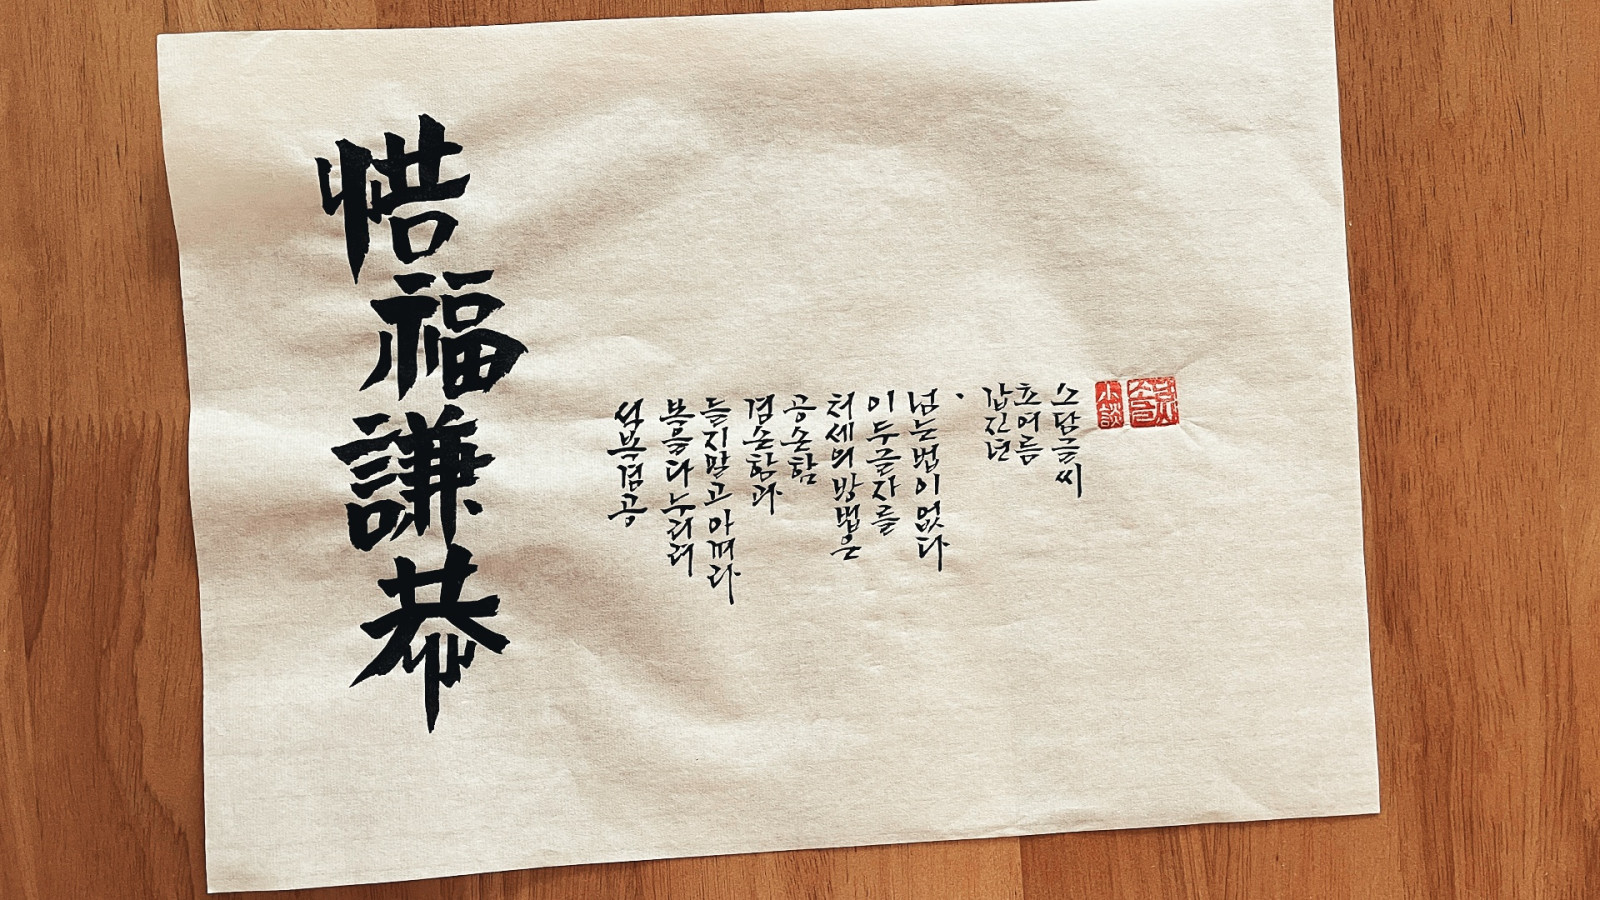 惜福謙恭
석복겸공
복을다누리려
들지말고아껴라
겸손함과
공손함
처세의방법은
이두글자를
넘는법이없다
.
갑진년
초여름
소담글씨
小談